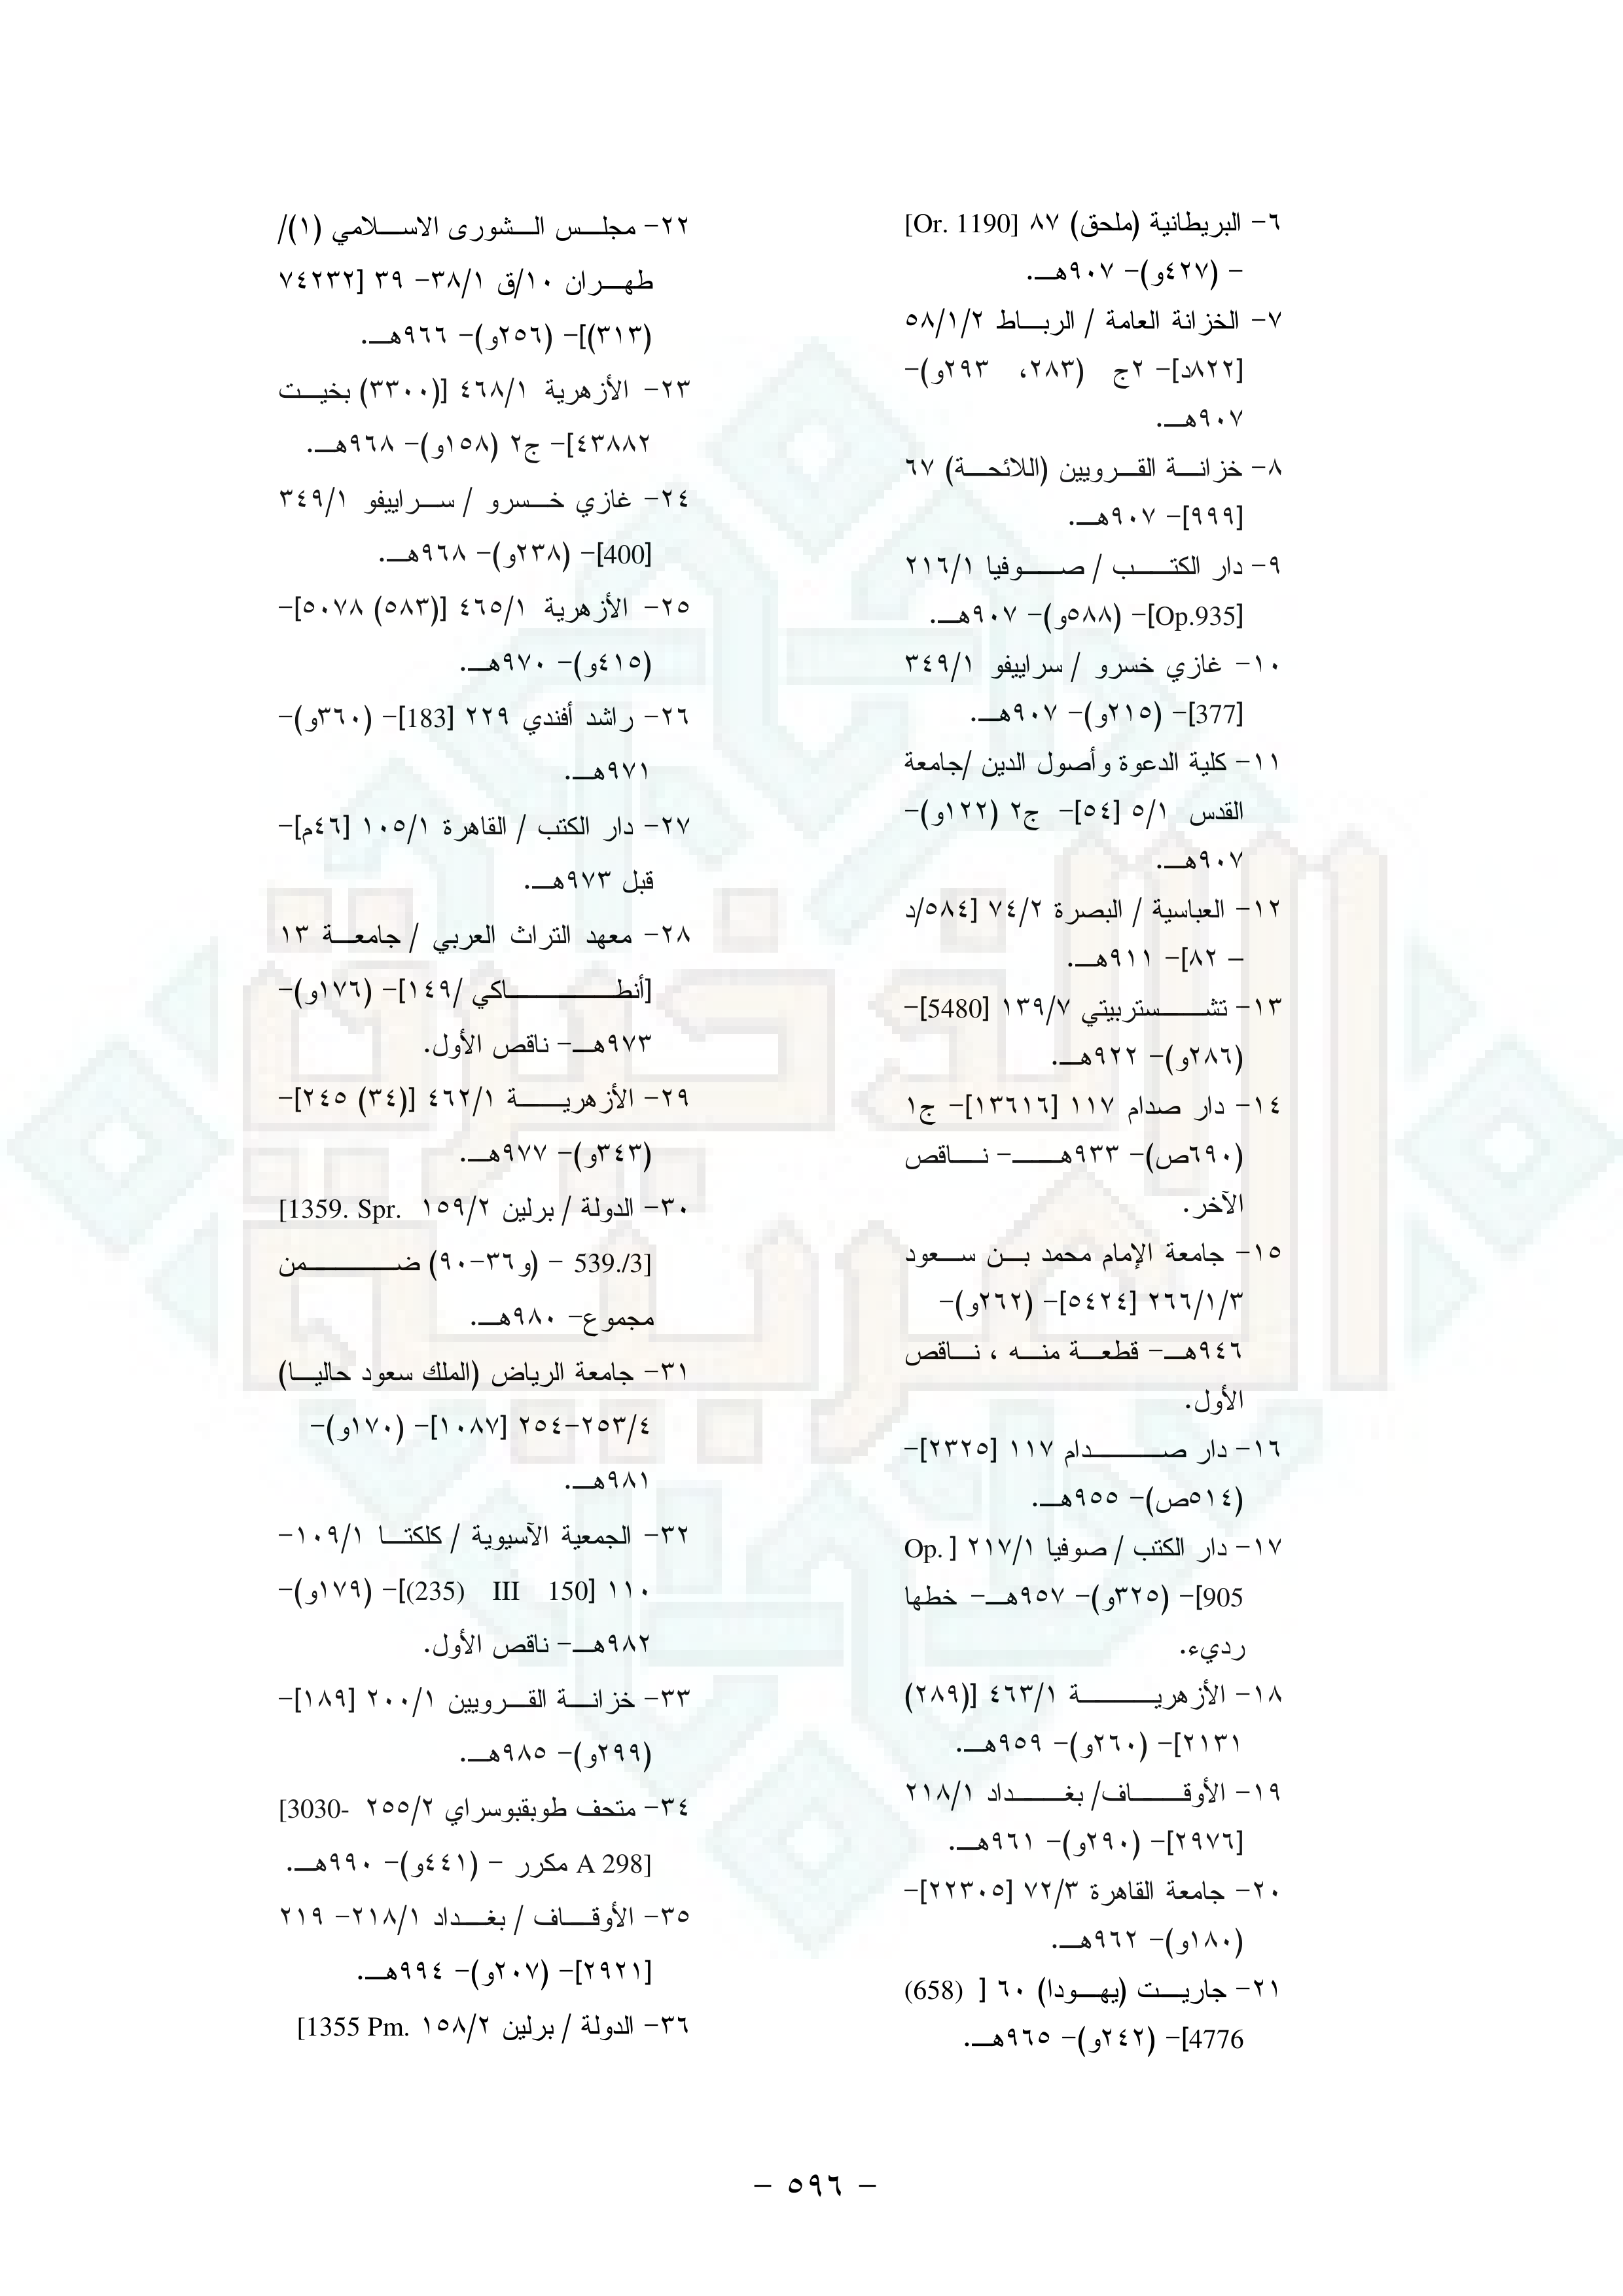 ٦- البريطانية (ملحق) ٨٧ [Or. 1190]
- (٤٢٧و)- ٩٠٧هـ.
٧- الخزانة العامة / الرباط ٥٨/١/٢
[٨٢٢د]- ٢ج (٢٨٣، ٢٩٣و)-
٩٠٧هـ.
٨- خزانة القرويين (اللائحة) ٦٧
[٩٩٩]- ٩٠٧هـ.
٩- دار الكتب / صوفيا ٢١٦/١
[Op.935]- (٥٨٨و)- ٩٠٧هـ.
١٠- غازي خسرو / سراييفو ٣٤٩/١
[377]- (٢١٥و)- ٩٠٧هـ.
١١- كلية الدعوة وأصول الدين /جامعة
القدس ٥/١ [٥٤]- ج٢ (١٢٢و)-
٩٠٧هـ.
١٢- العباسية / البصرة ٧٤/٢ [٥٨٤/د
– ٨٢]- ٩١١هـ.
١٣- تشستربيتي ١٣٩/٧ [5480]-
(٢٨٦و)- ٩٢٢هـ.
١٤- دار صدام ١١٧ [١٣٦١٦]- ج١
(٦٩٠ص)- ٩٣٣هـ- ناقص
الآخر.
١٥- جامعة الإمام محمد بن سعود
٢٦٦/١/٣ [٥٤٢٤]- (٢٦٢و)-
٩٤٦هـ- قطعة منه ، ناقص
الأول.
١٦- دار صدام ١١٧ [٢٣٢٥]-
(٥١٤ص)- ٩٥٥هـ.
١٧- دار الكتب / صوفيا ٢١٧/١ [ Op.
905]- (٣٢٥و)- ٩٥٧هـ- خطها
رديء.
١٨- الأزهرية ٤٦٣/١ [(٢٨٩)
٢١٣١]- (٢٦٠و)- ٩٥٩هـ.
١٩- الأوقاف/ بغداد ٢١٨/١
[٢٩٧٦]- (٢٩٠و)- ٩٦١هـ.
٢٠- جامعة القاهرة ٧٢/٣ [٢٢٣٠٥]-
(١٨٠و)- ٩٦٢هـ.
٢١- جاريت (يهودا) ٦٠ [ (658)
4776]- (٢٤٢و)- ٩٦٥هـ.
٢٢- مجلس الشورى الاسلامي (١)/
طهران ١٠/ق ٣٨/١- ٣٩ [٧٤٢٣٢
(٣١٣)]- (٢٥٦و)- ٩٦٦هـ.
٢٣- الأزهرية ٤٦٨/١ [(٣٣٠٠) بخيت
٤٣٨٨٢]- ج٢ (١٥٨و)- ٩٦٨هـ.
٢٤- غازي خسرو / سراييفو ٣٤٩/١
[400]- (٢٣٨و)- ٩٦٨هـ.
٢٥- الأزهرية ٤٦٥/١ [(٥٨٣) ٥٠٧٨]-
(٤١٥و)- ٩٧٠هـ.
٢٦- راشد أفندي ٢٢٩ [183]- (٣٦٠و)-
٩٧١هـ.
٢٧- دار الكتب / القاهرة ١٠٥/١ [٤٦م]-
قبل ٩٧٣هـ.
٢٨- معهد التراث العربي / جامعة ١٣
[أنطاكي /١٤٩]- (١٧٦و)-
٩٧٣هـ- ناقص الأول.
٢٩- الأزهرية ٤٦٢/١ [(٣٤) ٢٤٥]-
(٣٤٣و)- ٩٧٧هـ.
٣٠- الدولة / برلين ١٥٩/٢ [1359. Spr.
539./3] - (و٣٦-٩٠) ضمن
مجموع- ٩٨٠هـ.
٣١- جامعة الرياض (الملك سعود حاليا)
٢٥٣/٤-٢٥٤ [١٠٨٧]- (١٧٠و)-
٩٨١هـ.
٣٢- الجمعية الآسيوية / كلكتا ١٠٩/١-
١١٠ [(235) III 150]- (١٧٩و)-
٩٨٢هـ- ناقص الأول.
٣٣- خزانة القرويين ٢٠٠/١ [١٨٩]-
(٢٩٩و)- ٩٨٥هـ.
٣٤- متحف طوبقبوسراي ٢٥٥/٢ [3030-
A 298] مكرر - (٤٤١و)- ٩٩٠هـ.
٣٥- الأوقاف / بغداد ٢١٨/١- ٢١٩
[٢٩٢١]- (٢٠٧و)- ٩٩٤هـ.
٣٦- الدولة / برلين ١٥٨/٢ [1355 Pm.
- ٥٩٦ -
الذخيرة
العربية